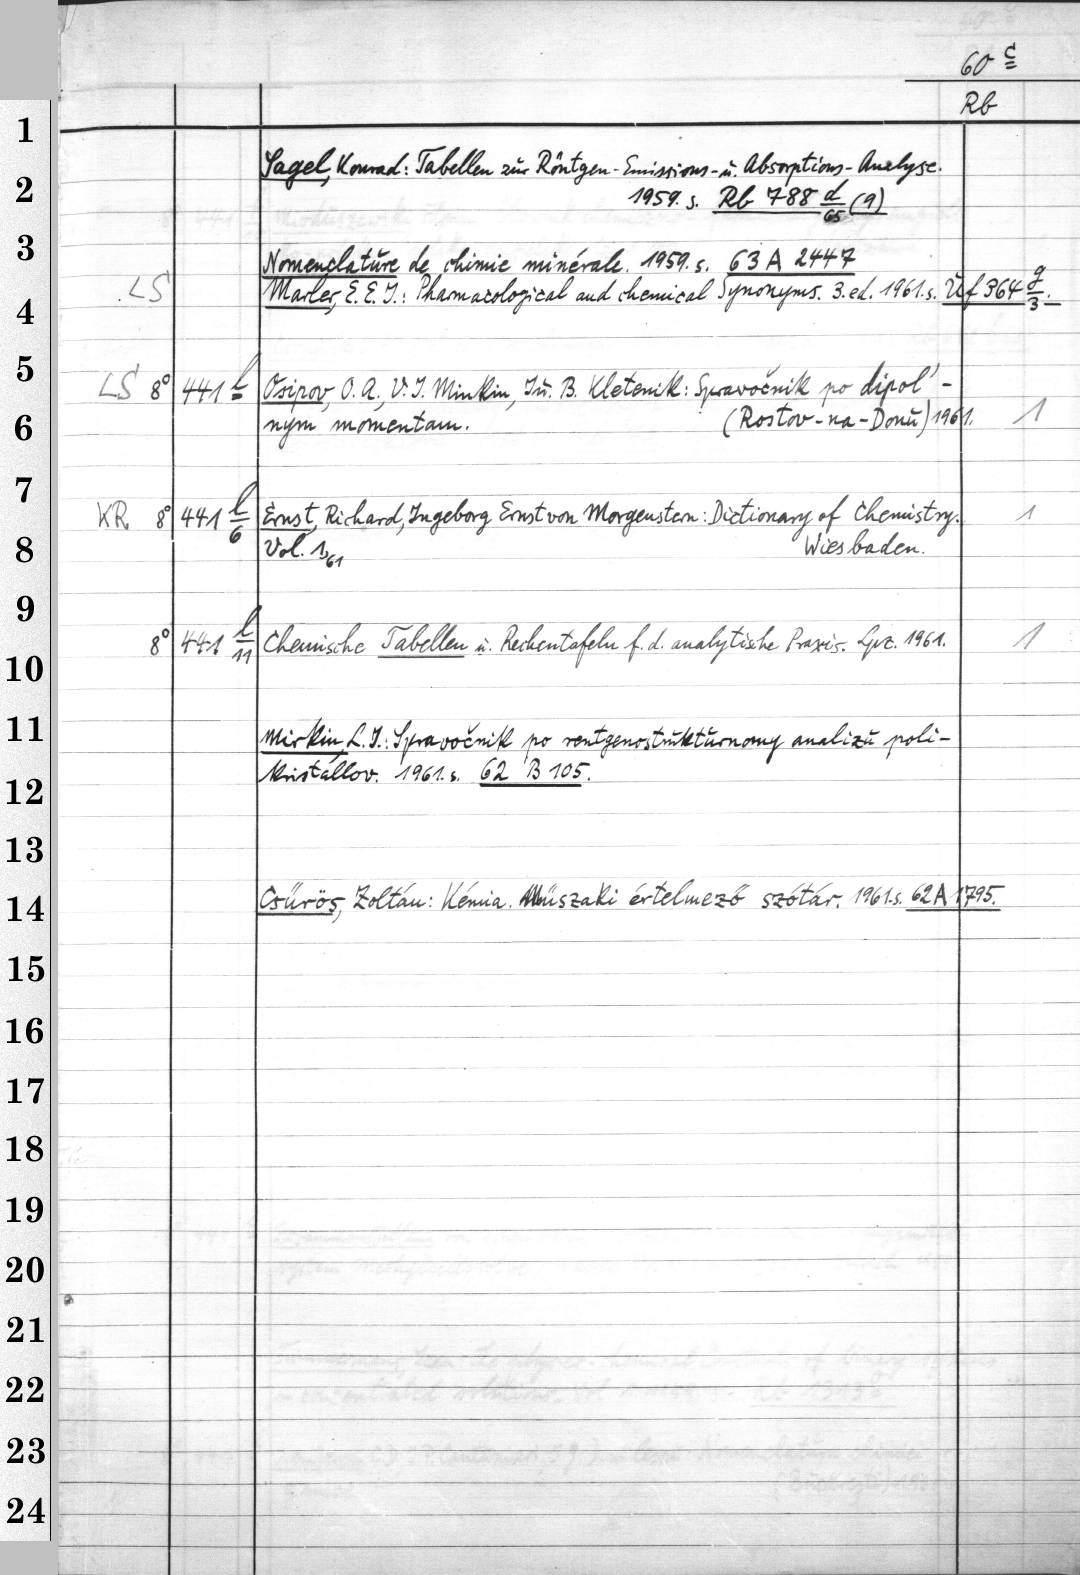 60 c
Rb
1
Sagel, Konrad: Tabellen zur Röntgen-Emissions- u. Absorptions-Analyse.
2 1959. s. Rb 788 d/65 (9)
3 Nomenclature de chimie minérale. 1959. s. 63 A 2447
LS Marler, E. E. J.: Pharmacological and chemical Synonyms. 3. ed. 1961. s. Uf 364 g/3.
4
5 LS 8° 441 l Osipov, O. A., V. I. Minkin, Ju. B. Kletenik: Spravočnik po dipol' -
6 nym momentam. (Rostov-na-Donu) 1961. 1
7 KR 8° 441 l/6 Ernst, Richard, Ingeborg Ernst von Morgenstern: Dictionary of Chemistry. 1
8 Vol. 1, 61 Wiesbaden.
9
8° 441 l/11 Chemische Tabellen u. Rechentafeln f. d. analytische Praxis. Lpz. 1961. 1
10
11 Mirkin, L. I.: Spravočnik po rentgenostrukturnomy analizu poli-
12 kristállov. 1961. s. 62 B 105.
13
14 Csűrös, Zoltán: Kémia. Műszaki értelmező szótár. 1961. s. 62 A 1795.
15
16
17
18
19
20
21
22
23
24